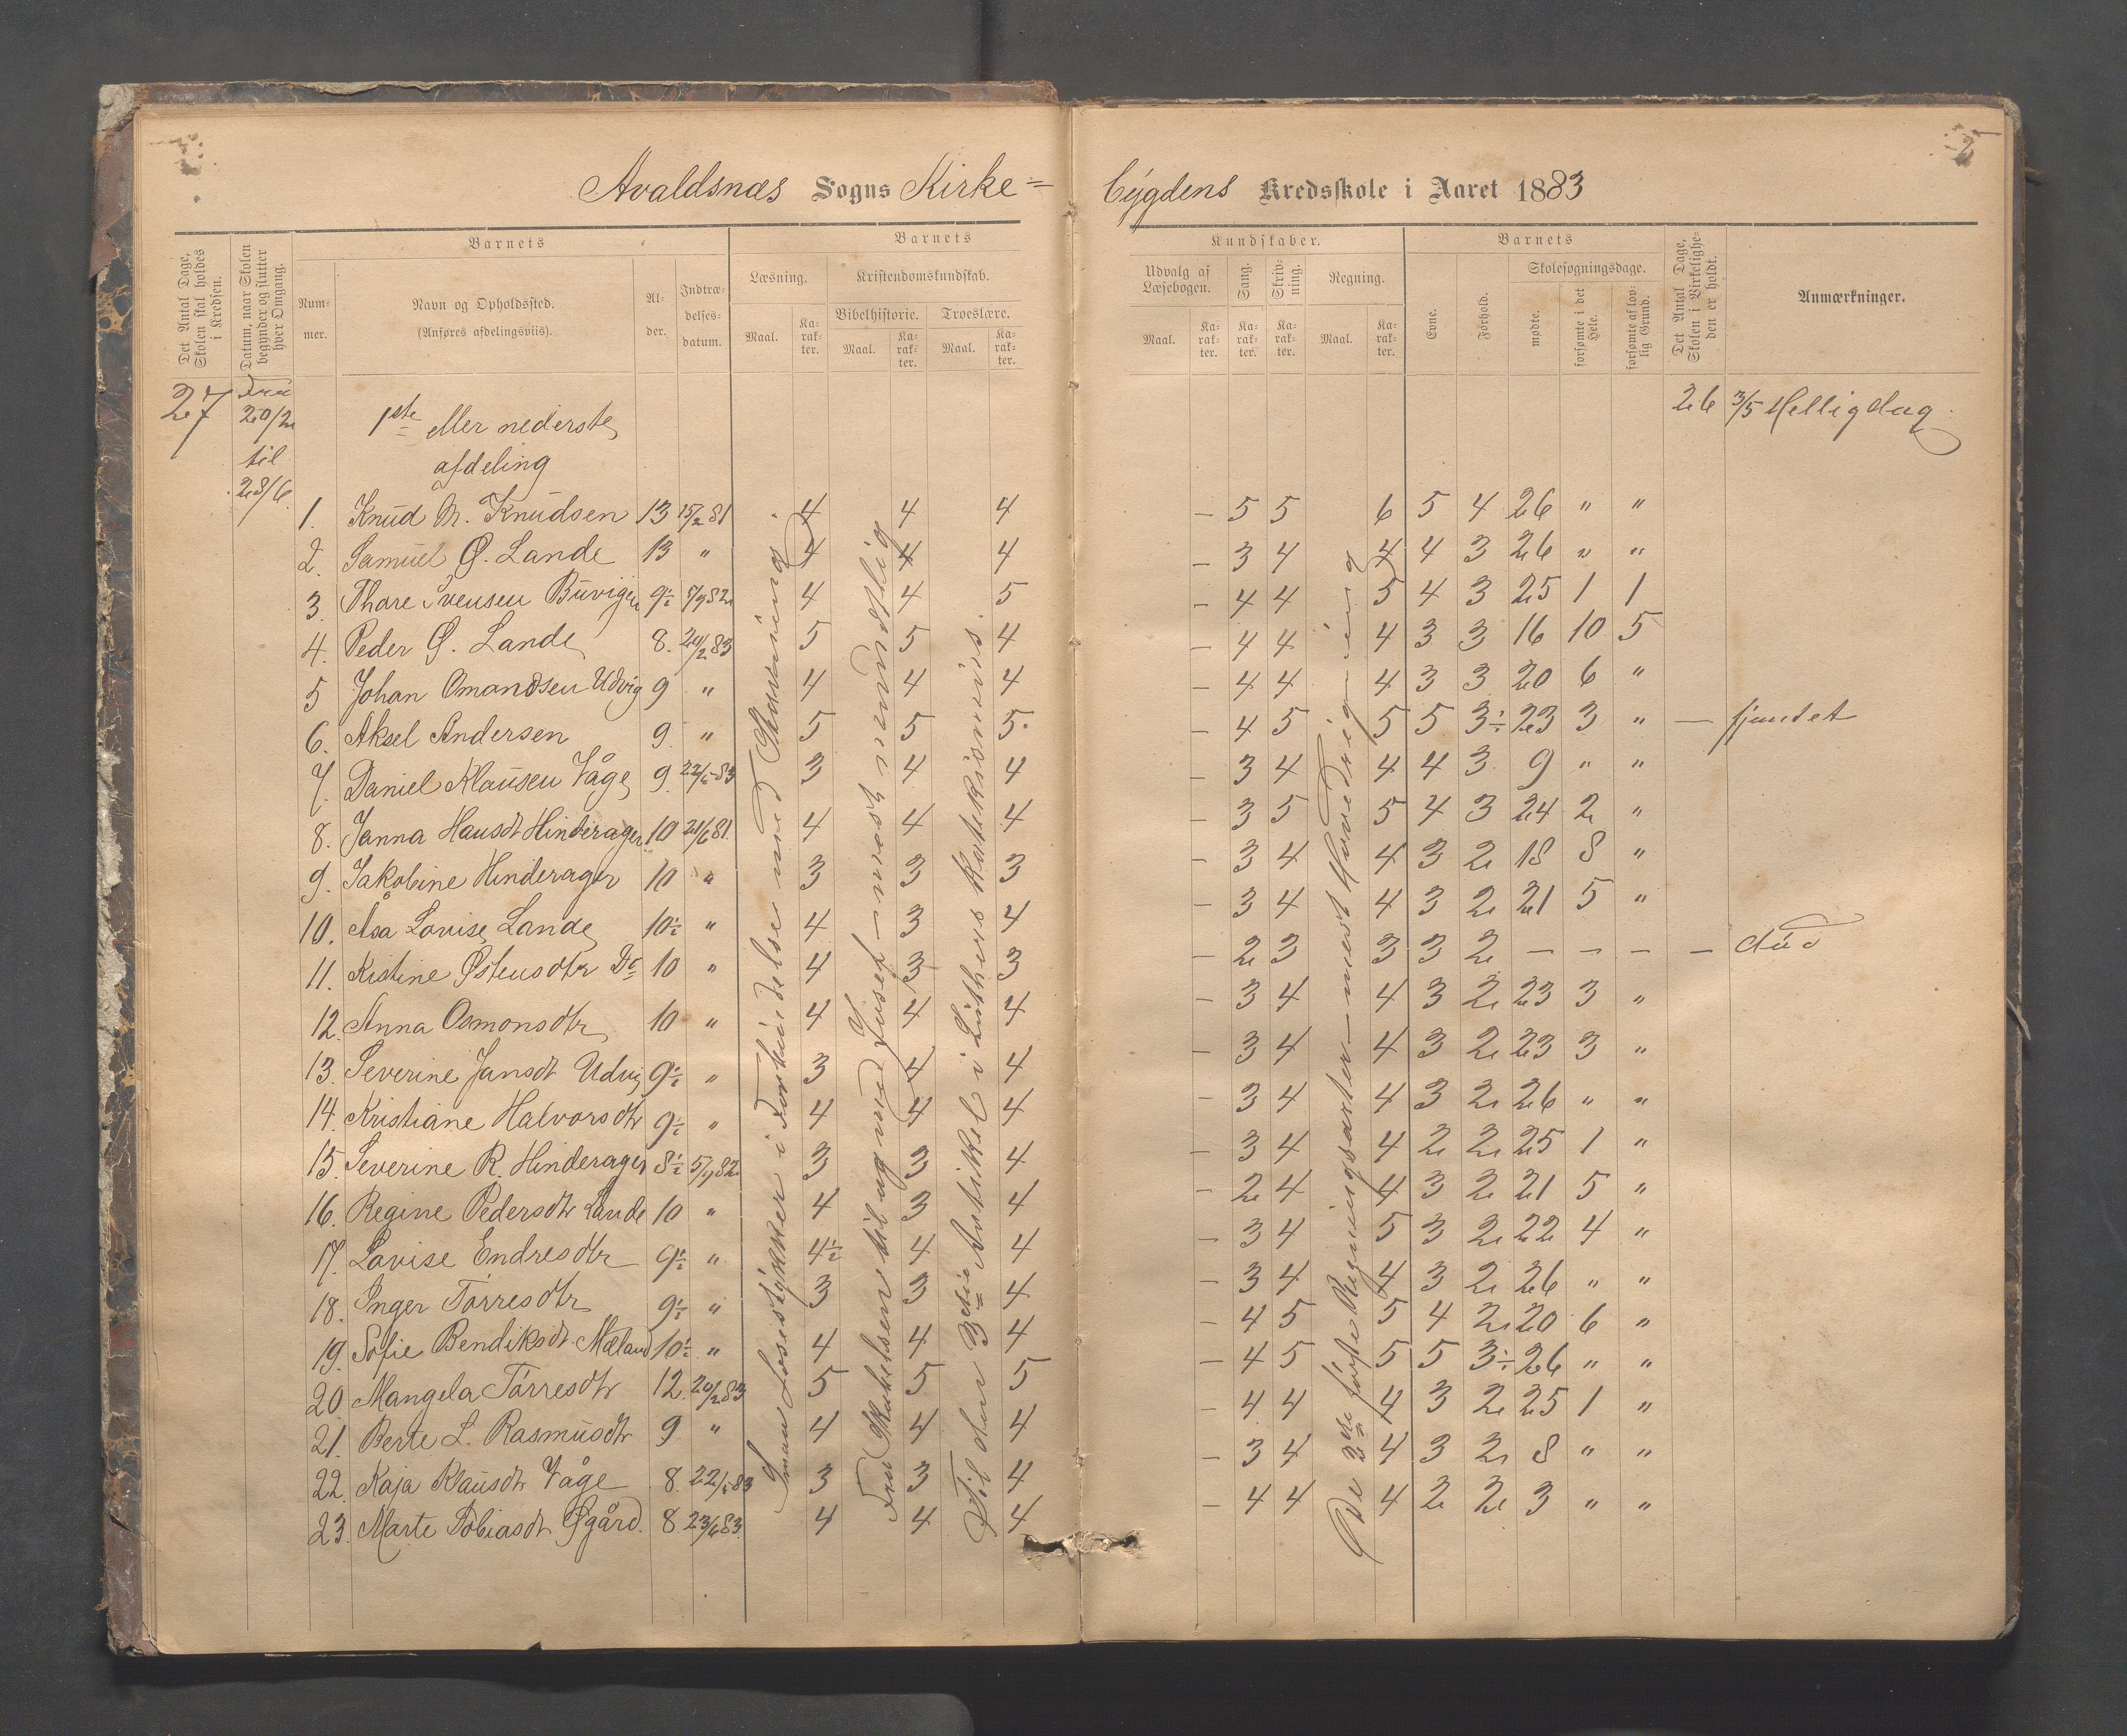 2
Avaldsnæs Sogns Kirke=
bygdens Kredsskole i Aaret 1883
Det Antal Dage, Skolen skal holdes i Kredsen.
Datum, naar Skolen begynder og slutter hver Omgang.
Barnets
Nummer.
Navn og Opholdssted.
(Anføres afdelingsviis).
Alder.
Indtrædelsesdatum.
Barnets
Læsning.
Kristendomskundskab.
Bibelhistorie. Troeslære.
Maal. Karakter. Maal. Karakter. Maal. Karakter.
Kundskaber.
Udvalg af Læsebogen. Sang. Skrivning. Regning.
Maal. Karakter. Karakter. Karakter. Maal. Karakter.
Barnets
Evne. Forhold. Skolesøgningsdage.
mødte. forsømte i det Hele. forsømte af lovlig Grund.
Det Antal Dage, Skolen i Virkeligheden er holdt.
Anmærkninger.
27 Fra 20/2 til 28/6 1ste eller nederste afdeling 26 3/5 Helligdag.
1. Knud M. Knudsen 13 15/2 81 4 4 4 – 5 5 6 5 4 26 " "
2. Samuel Ø. Lande 13 " 4 4 4 – 3 4 4 4 3 26 " "
3. Thore Svensen Buvigen 9½ 5/9 82 4 4 5 – 4 4 5 4 3 25 1 1
4. Peder Ø. Lande 8. 20/2 83 5 5 4 – 4 4 4 3 3 16 10 5
5 Johan Omandsen Udvig 9 " 4 4 4 – 4 4 4 3 3 20 6 "
6. Aksel Andersen 9 " 5 5 5. – 4 5 5 5 3½ 23 3 " –
7. Daniel Klausen Våge 9. 22/5 83 3 4 4 – 3 4 4 4 3 9 " "
8. Janna Hansdt Hinderager 10 21/6 81 4 4 4 – 3 5 5 4 3 24 2 "
9. Jakobine Hinderager 10 " 3 3 3 – 3 4 4 3 2 18 8 "
10. Åsa Lovise Lande 10½ " 4 3 4 – 3 4 4 3 2 21 5 "
11. Kistine Østensdtr Do 10 " 4 3 3 – 2 3 3 3 2 – – – – død
12. Anna Osmonsdtr 10 " 4 4 4 – 3 4 4 3 2 23 3 "
13. Severine Jansdt Udvig 9½ " 3 4 4 – 3 4 4 3 2 23 3 "
14. Kristiane Halvorsdtr 9½ " 4 4 4 – 3 4 4 3 2 26 " "
15. Severine R. Hinderager 8½ 5/9 82 3 3 4 – 3 4 4 2 2 25 1 "
16. Regine Pedersdtr Lande 10 " 4 3 4 – 2 4 4 3 2 21 5 "
17. Lovise Endresdtr 9½ " 4½ 4 4 – 3 4 5 3 2 22 4 "
18. Inger Torresdtr 9½ " 3 3 4 – 3 4 4 3 2 26 " "
19. Sofie Bendiksdt Mæland 10½ " 4 4 4 – 4 5 5 4 2 20 6 "
20. Mangela Torresdtr 12. 20/2 83 5 5 5 – 4 5 5 5 3½ 26 " "
21. Berte L. Rasmusdtr 9 " 4 4 4 – 4 4 4 3 2 25 1 "
22. Kaja Klausdtr Våge 8. 22/5 83 3 3 4 – 3 4 4 3 2 8 " "
23. Marte Tobiasdt Øgård. 8. 23/6 83. 4 4 4 – 4 4 4 2 2 3 " "
Smaa Læsestykker i Forbindelse med Stavning.
Fra Skabelsen til og med Josef – mest mundtlig
Til den 3die Artikkel i Luthers Katekismus.
De 2de første Regningsarter – mest Hovedregning